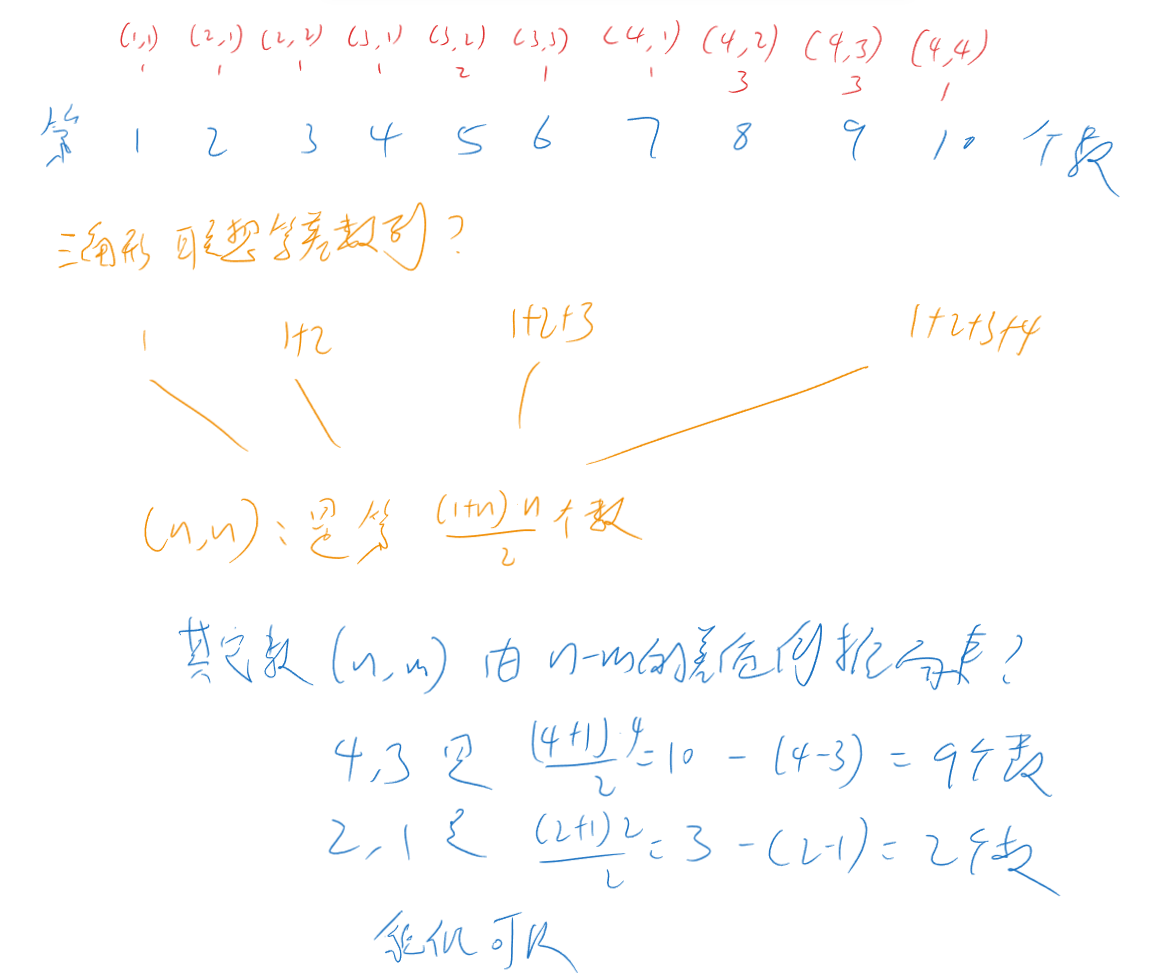 (1,1) (2,1) (2,2) (3,1) (3,2) (3,3) (4,1) (4,2) (4,3) (4,4)
1 1 1 1 2 1 1 3 3 1
第 1 2 3 4 5 6 7 8 9 10 个数
三角形 联想等差数列?
1 1+2 1+2+3 1+2+3+4
(n,n): 是第 (1+n)n/2 个数
其它数 (n,m) 由 n-m的差值倒推回来?
4,3 是 (4+1)·4/2 = 10 - (4-3) = 9个数
2,1 是 (2+1)2/2 = 3 - (2-1) = 2个数
貌似可以